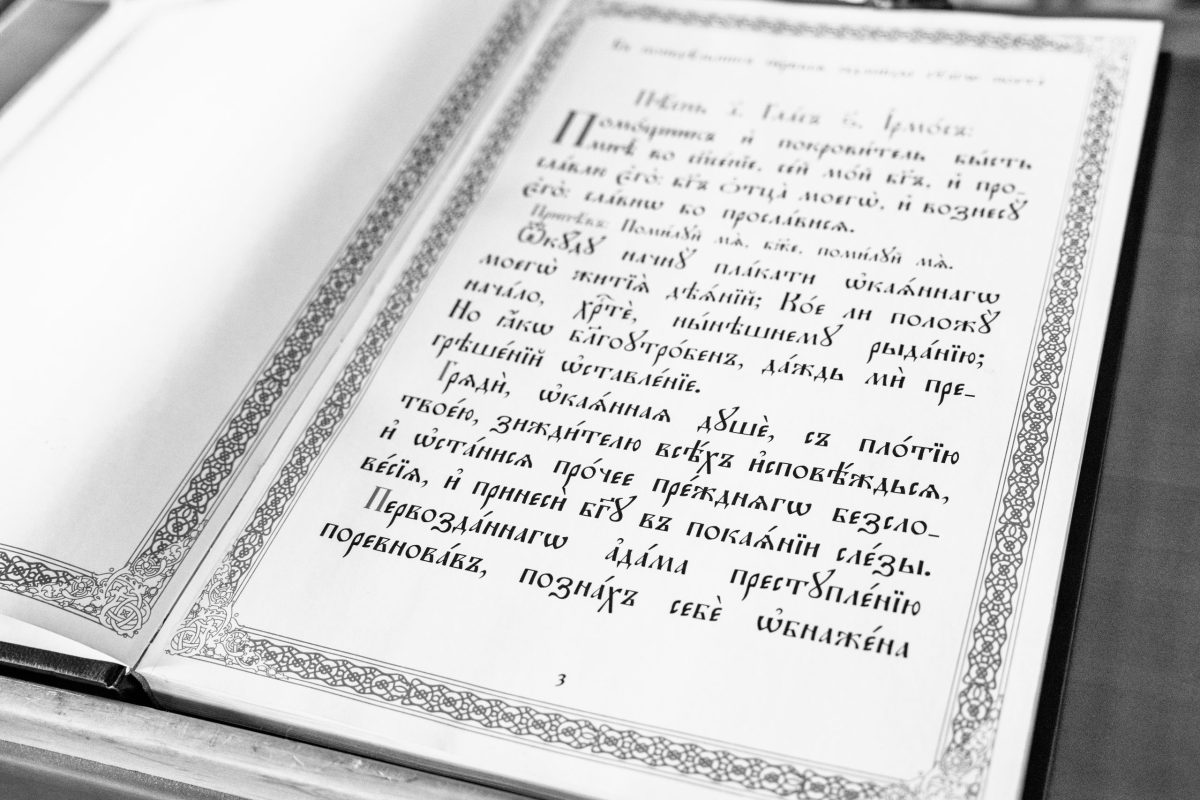 Пѣ́снь а҃. Гла́съ ѕ҃. І҆рмо́съ:
Помо́щникъ и҆ покрови́тель бы́сть
мнѣ̀ во сп҃се́нїе, се́й мо́й бг҃ъ, и҆ про_
сла́влю є҆го̀: бг҃ъ ѻ҆тца̀ моегѡ̀, и҆ вознесꙋ̀
є҆го̀: сла́внѡ бо просла́висѧ.
Припѣ́въ: Поми́лꙋй мѧ̀, бж҃е, поми́лꙋй мѧ̀.
Ѿкꙋ́дꙋ начнꙋ̀ пла́кати ѡ҆каѧ́ннагѡ
моегѡ̀ житїѧ̀ дѣѧ́нїй; Ко́е ли положꙋ̀
нача́ло, хрⷭ҇тѐ, ны́нѣшнемꙋ рыда́нїю;
Но ꙗ҆́кѡ бл҃гоꙋтро́бенъ, да́ждь мѝ пре_
грѣше́нїй ѡ҆ставле́нїе.
Грѧдѝ, ѡ҆каѧ́ннаѧ дꙋшѐ, съ пло́тїю
твое́ю, зижди́телю всѣ́хъ и҆сповѣ́ждьсѧ,
и҆ ѡ҆ста́нисѧ про́чее пре́ждиѧгѡ безсло_
ве́сїѧ, и҆ принесѝ бг҃ꙋ въ покаѧ́нїи сле́зы.
Первозда́ннагѡ а҆да́ма престꙋпле́нїю
поревнова́въ, позна́хъ себѐ ѡ҆бнаже́на
3